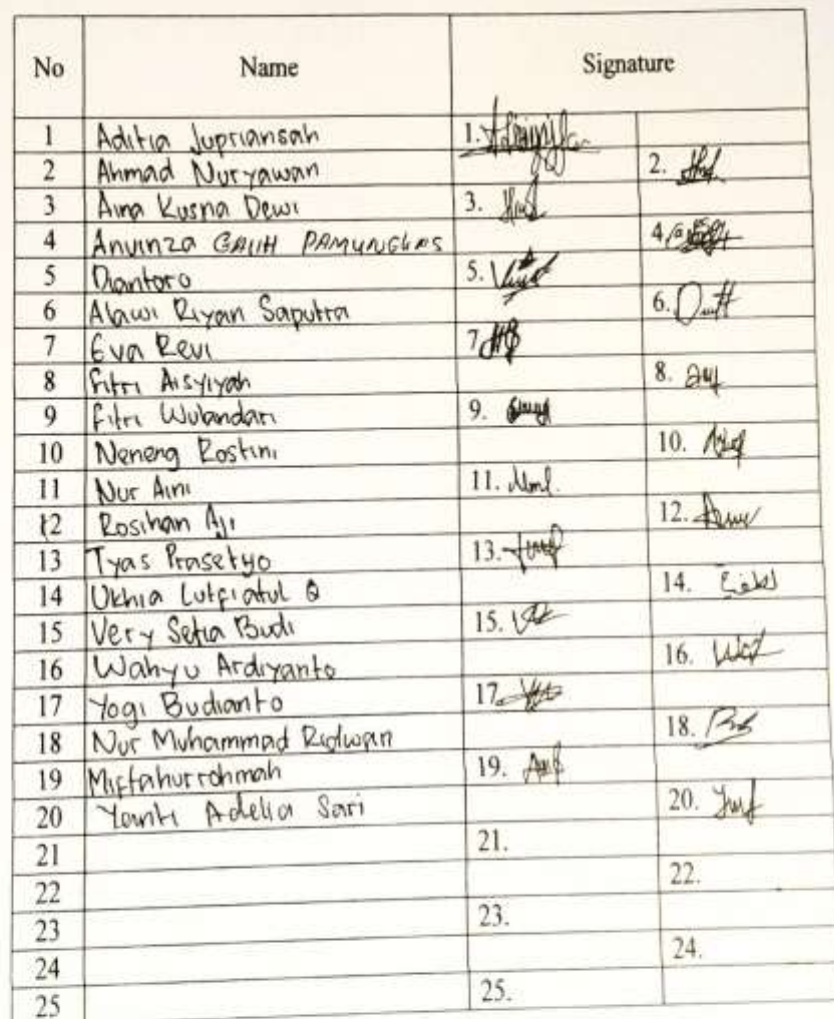 No Name Signature
1 Aditia Jupriansah 1.
2 Ahmad Nuryawan 2.
3 Aina Kusna Dewi 3.
4 Anvinza GALIH PAMUNGKAS 4.
5 Diantoro 5.
6 Alawi Riyan Saputra 6.
7 Eva Revi 7
8 Fitri Aisyiyah 8.
9 Fitri Wulandari 9.
10 Neneng Rostini 10.
11 Nur Aini 11.
12 Rosihan Aji 12.
13 Tyas Prasetyo 13.
14 Ukhia Lutfiatul Q 14.
15 Very Setia Budi 15.
16 Wahyu Ardiyanto 16.
17 Yogi Budianto 17.
18 Nur Muhammad Ridwan 18.
19 Miftahurrohmah 19.
20 Yanti Adelia Sari 20.
21 21.
22 22.
23 23.
24 24.
25 25.